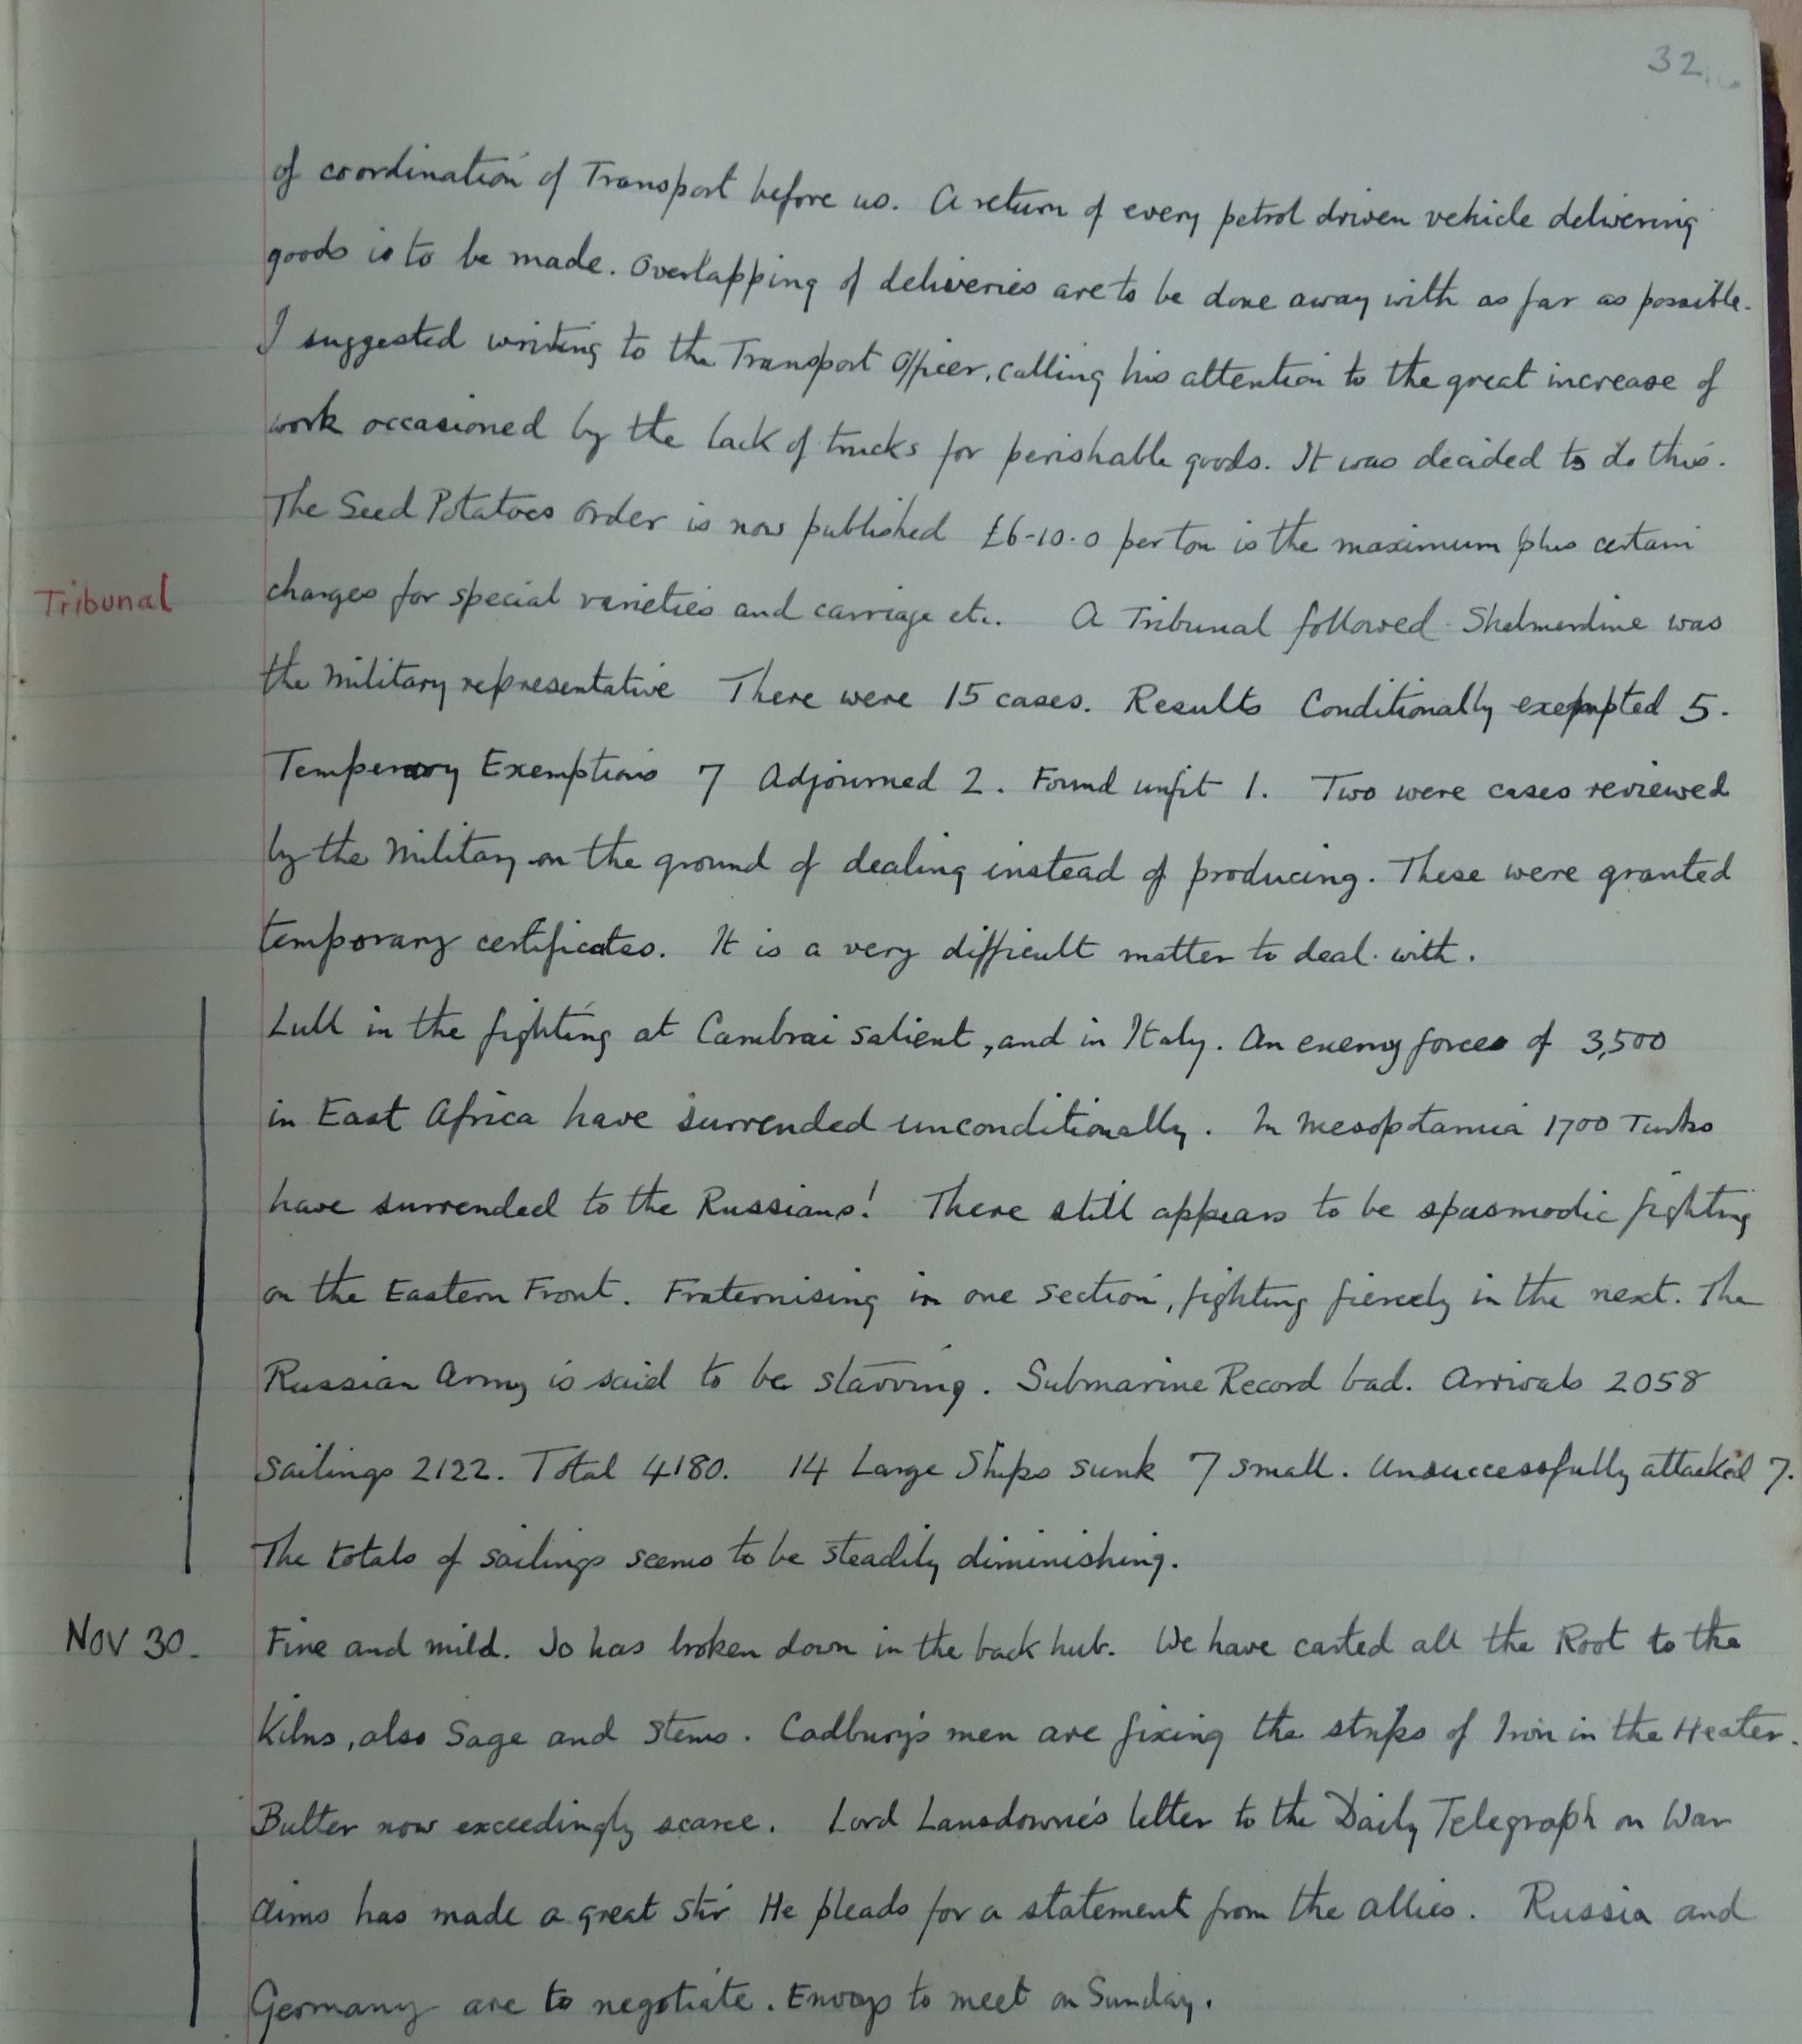 32
of coordination of Transport before us. A return of every petrol driven vehicle delivering
goods is to be made. Overlapping of deliveries are to be done away with as far as possible.
I suggested writing to the Transport Officer, calling his attention to the great increase of
work occasioned by the lack of trucks for perishable goods. It was decided to do this.
The Seed Potatoes Order is now published £6-10.0 per ton is the maximum plus certain
Tribunal
charges for special varieties and carriage etc. A Tribunal followed. Shelmerdine was
the Military representative There were 15 cases. Results Conditionally exempted 5.
Temperary Exemptions 7 Adjourned 2. Found unfit 1. Two were cases reviewed
by the Military on the ground of dealing instead of producing. These were granted
temporary certificates. It is a very difficult matter to deal with.
Lull in the fighting at Cambrai salient, and in Italy. An enemy forces of 3,500
in East Africa have surrended unconditionally. In Mesoptamia 1700 Turks
have surrended to the Russians! There still appears to be spasmodic fighting
on the Eastern Front. Fraternising in one section, fighting fiercely in the next. The
Russian Army is said to be starving. Submarine Record bad. Arrivals 2058
Sailings 2122. Total 4180. 14 Large Ships sunk 7 small. Unsuccessfully attacked 7.
The totals of sailings seems to be steadily diminishing.
Nov 30. Fine and mild. Jo has broken down in the back hub. We have carted all the Root to the
Kilns, also Sage and Stems. Cadbury's men are fixing the strips of Iron in the Heater.
Butter now exceedingly scarce. Lord Lansdowne's letter to the Daily Telegraph on War
aims has made a great stir He pleads for a statement from the allies. Russia and
Germany are to negotiate. Envoys to meet on Sunday.